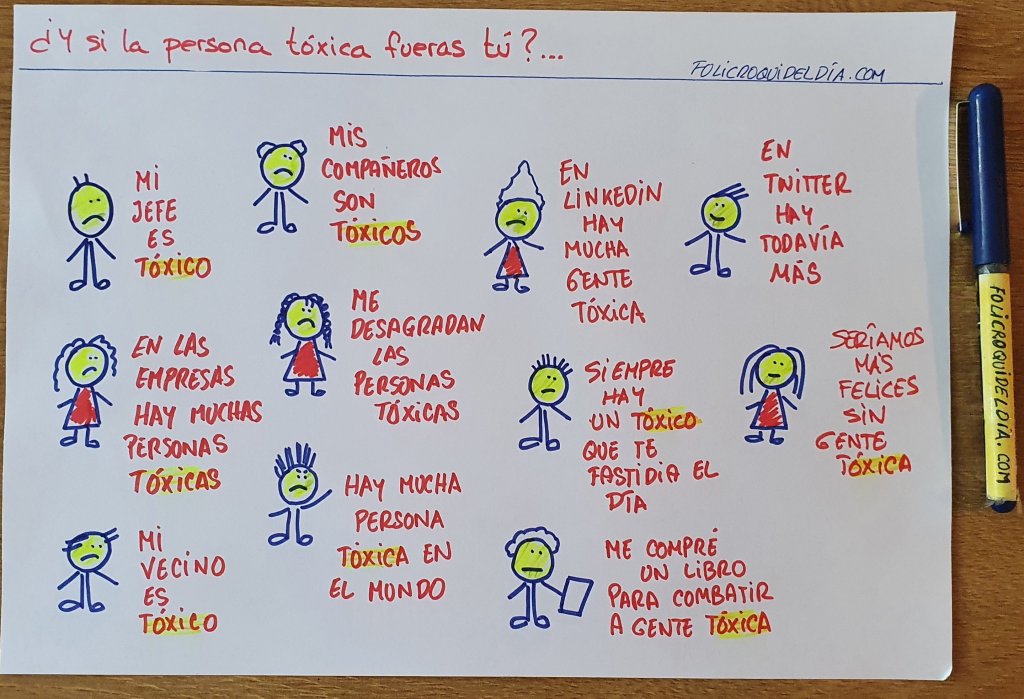 ¿Y si la persona tóxica fueras tú?...
FOLICROQUIDELDÍA.COM
MI
JEFE
ES
TÓXICO
MIS
COMPAÑEROS
SON
TÓXICOS
EN
LINKEDIN
HAY
MUCHA
GENTE
TÓXICA
EN
TWITTER
HAY
TODAVÍA
MÁS
EN LAS
EMPRESAS
HAY MUCHAS
PERSONAS
TÓXICAS
ME
DESAGRADAN
LAS
PERSONAS
TÓXICAS
SIEMPRE
HAY
UN TÓXICO
QUE TE
FASTIDIA EL
DÍA
SERÍAMOS
MÁS
FELICES
SIN
GENTE
TÓXICA
MI
VECINO
ES
TÓXICO
HAY MUCHA
PERSONA
TÓXICA EN
EL MUNDO
ME COMPRÉ
UN LIBRO
PARA COMBATIR
A GENTE TÓXICA
FOLICROQUIDELDÍA.COM